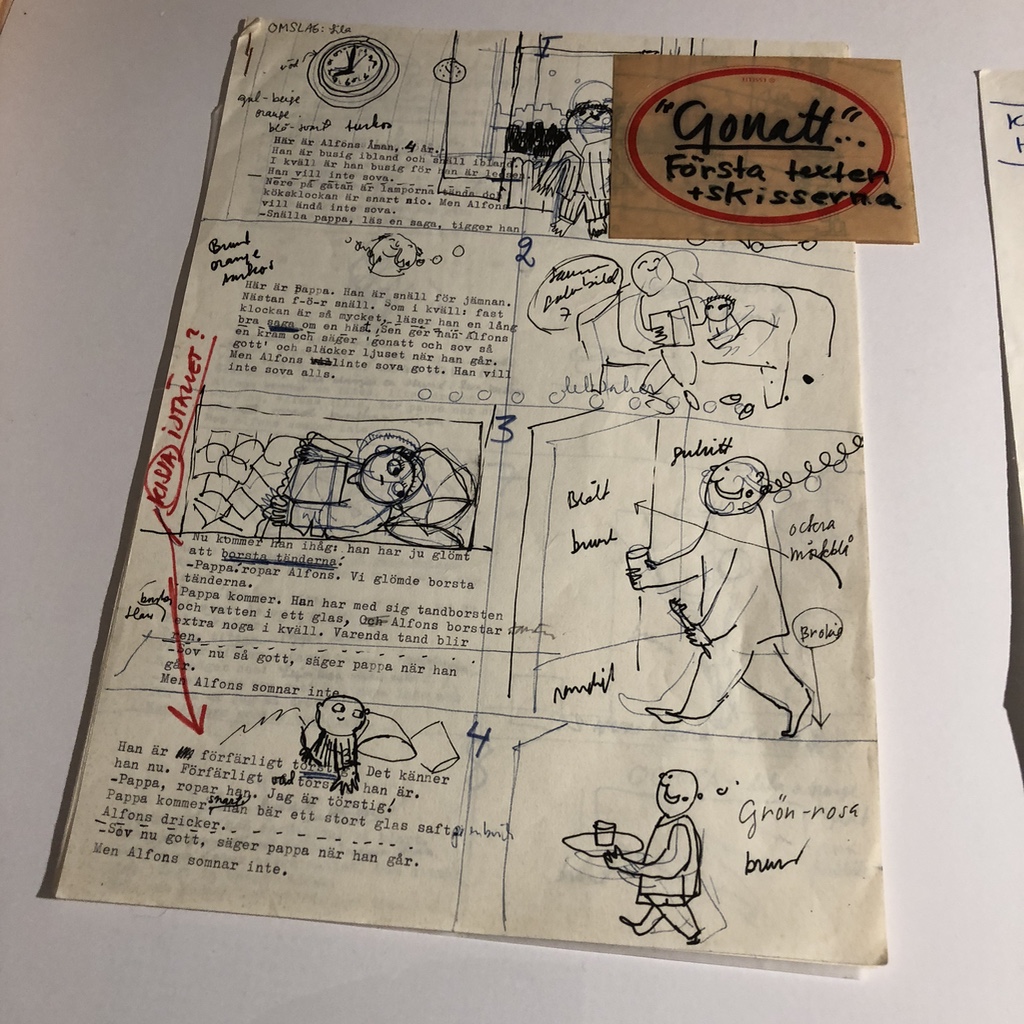 OMSLAG: lila
röd
gul-beige
orange
blå-svart turkos
1
"Gonatt"..
Första texten
+skisserna
Här är Alfons Åman, 4 År.
Han är busig ibland och snäll ibland.
I kväll är han busig för han är
Han vill inte sova.
Nere på gatan är lamporna tända och
köksklockan är snart nio. Men Alfons
vill ändå inte sova.
-Snälla pappa, läs en saga, tigger han
2
Brunt
orange
turkos
Här är Pappa. Han är snäll för jämnan.
Nästan f-ö-r snäll. Som i kväll: fast
klockan är så mycket, läser han en lång
bra saga om en häst. Sen ger han Alfons
en kram och säger 'gonatt och sov så
gott' och släcker ljuset när han går.
Men Alfons inte sova gott. Han vill
inte sova alls.
KISSA ISTÄLLET?
3
Nu kommer han ihåg: han har ju glömt
att borsta tänderna!
-Pappa! ropar Alfons. Vi glömde borsta
tänderna.
Pappa kommer. Han har med sig tandborsten
och vatten i ett glas, Och Alfons borstar
extra noga i kväll. Varenda tand blir
ren.
-Sov nu så gott, säger pappa när han
går.
Men Alfons somnar inte.
Blått
brunt
ockra
mörkblå
Brokig
4
Han är förfärligt törstig. Det känner
han nu. Förfärligt törstig han är.
-Pappa, ropar han. Jag är törstig!
Pappa kommer snart. Han bär ett stort glas saft
Alfons dricker.
-Sov nu gott, säger pappa när han går.
Men Alfons somnar inte.
Grön-rosa
brunt
K
H